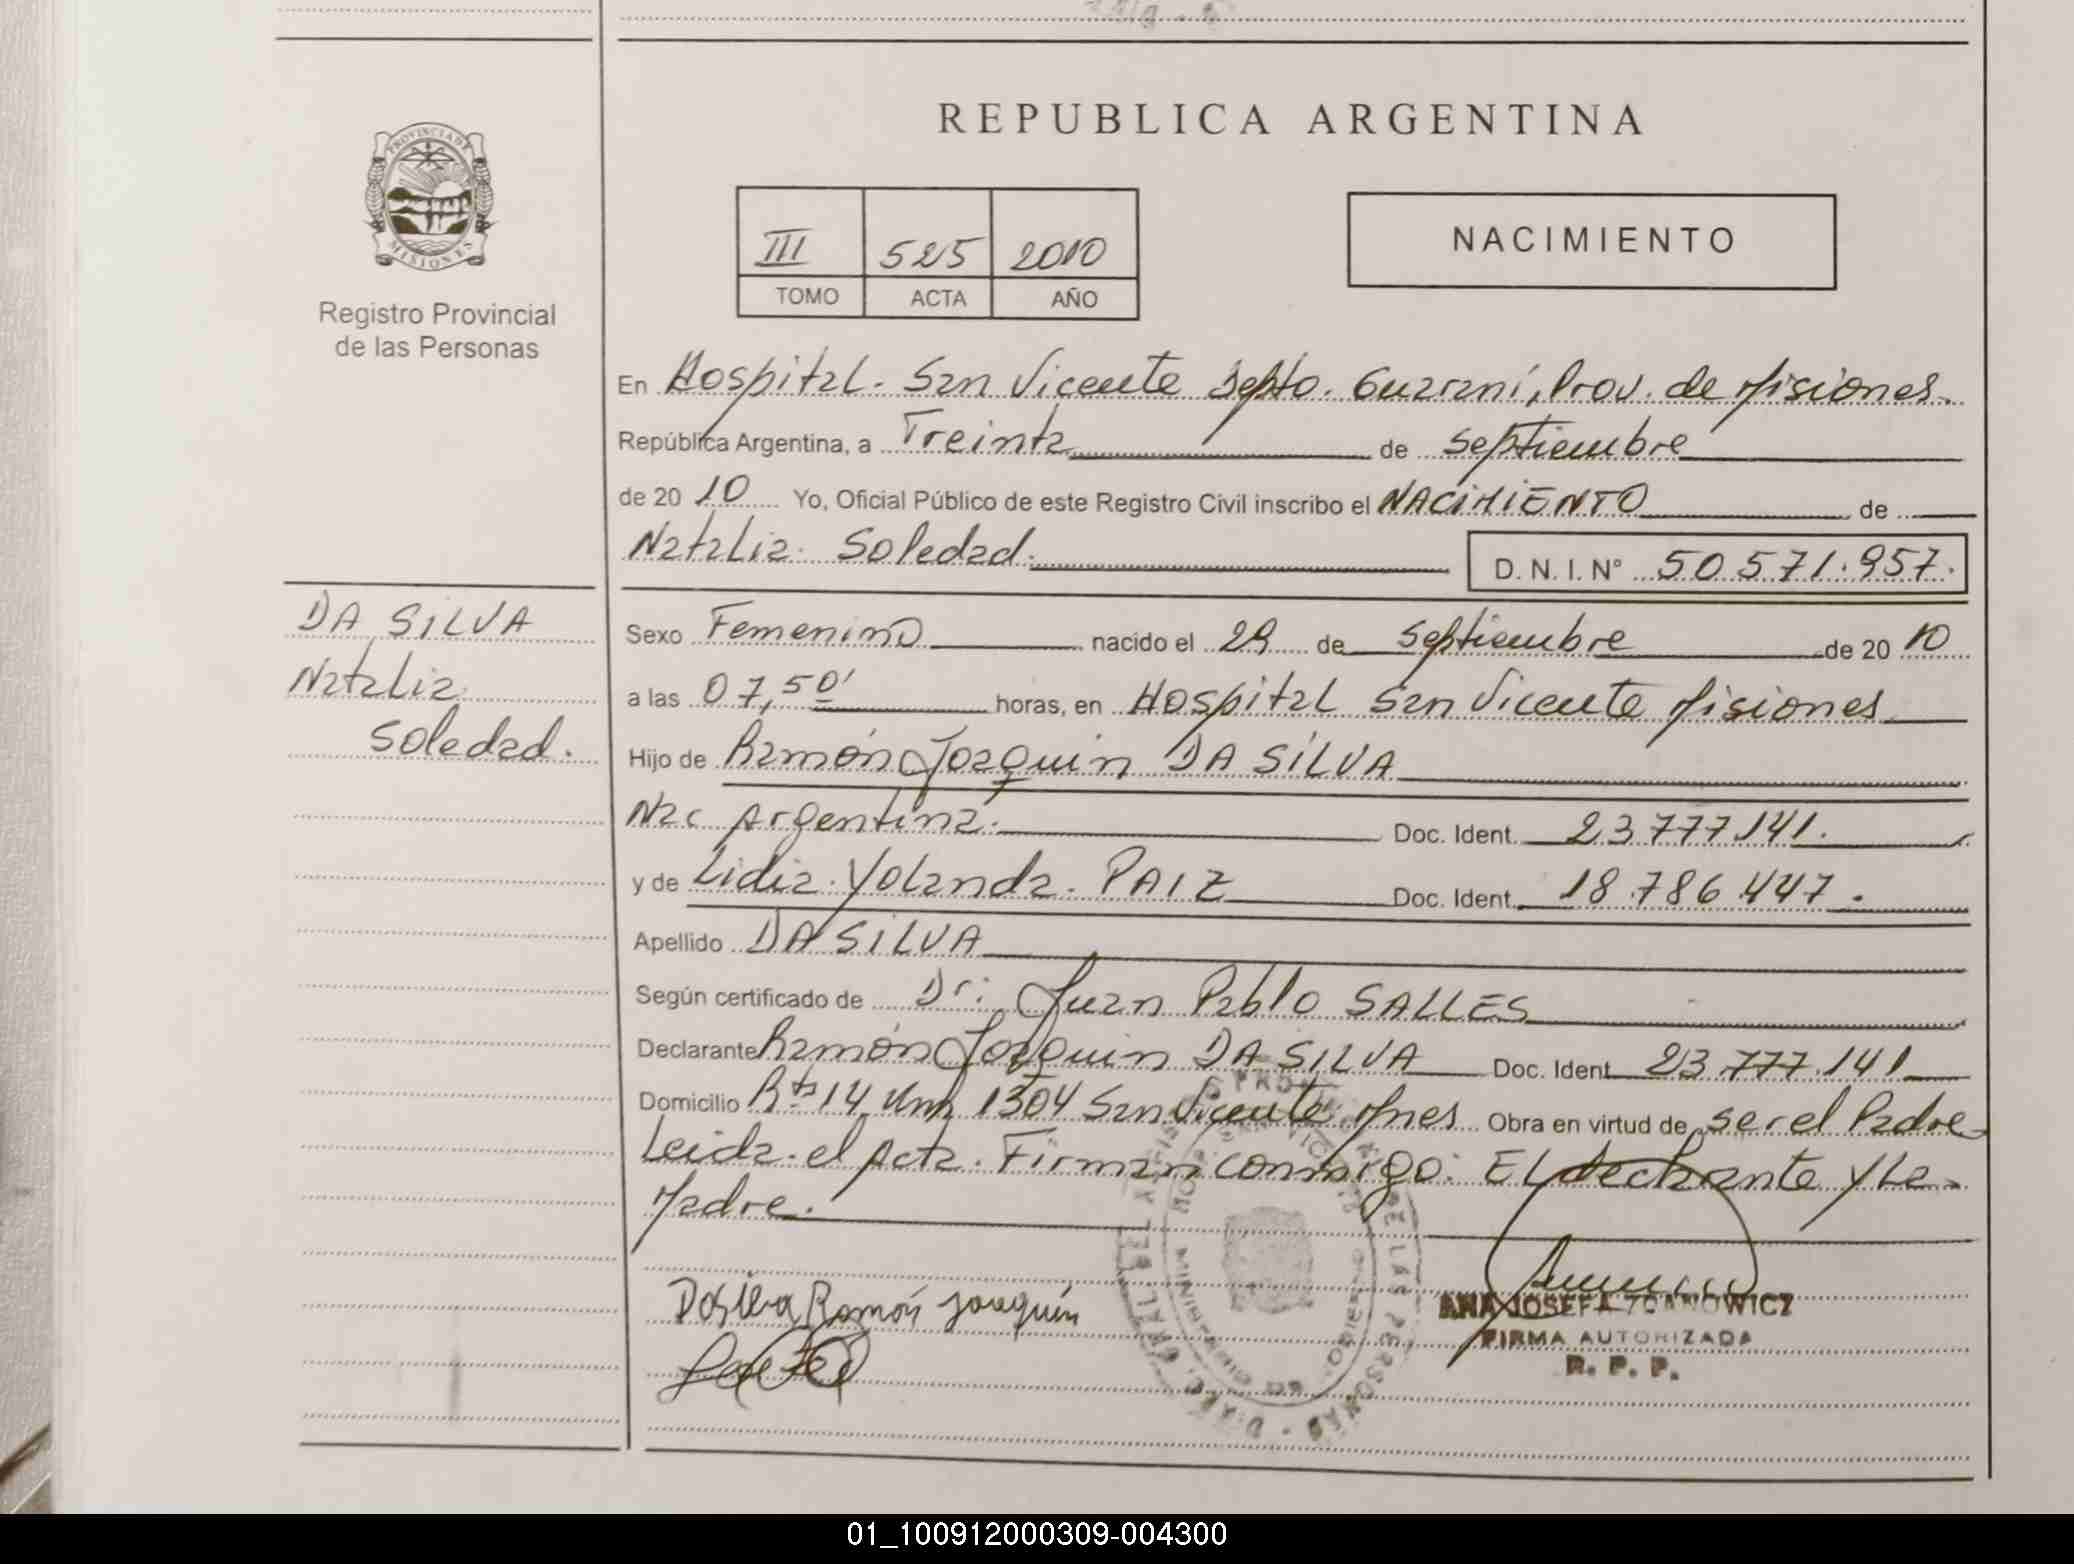 REPUBLICA ARGENTINA
PROVINCIA DE
MISIONES
Registro Provincial
de las Personas
III 525 2010
TOMO ACTA AÑO
NACIMIENTO
En Hospital San Vicente Depto. Guaraní, Prov. de Misiones.
República Argentina, a Treinta de Septiembre
de 20 10 Yo, Oficial Público de este Registro Civil inscribo el NACIMIENTO de
Natalia Soledad. D. N. I. N° 50.571.957.
DA SILVA
Natalia
Soledad.
Sexo Femenino nacido el 29 de Septiembre de 20 10
a las 07,50' horas, en Hospital San Vicente Misiones
Hijo de Ramón Joaquin DA SILVA
Nac Argentina. Doc. Ident. 23.777.141.
y de Lidia Yolanda PAIZ Doc. Ident. 18.786.447.
Apellido DA SILVA
Según certificado de Dr: Juan Pablo SALLES
Declarante Ramón Joaquin DA SILVA Doc. Ident. 23.777.141
Domicilio Rta 14 Km 1304 San Vicente Mnes Obra en virtud de ser el Padre
Leida el Acta. Firman conmigo: El declarante y la
Madre.
DaSilva Ramón Joaquín
DE LAS PERSONAS
FIRMA AUTORIZADA
R. P. P.
01_100912000309-004300